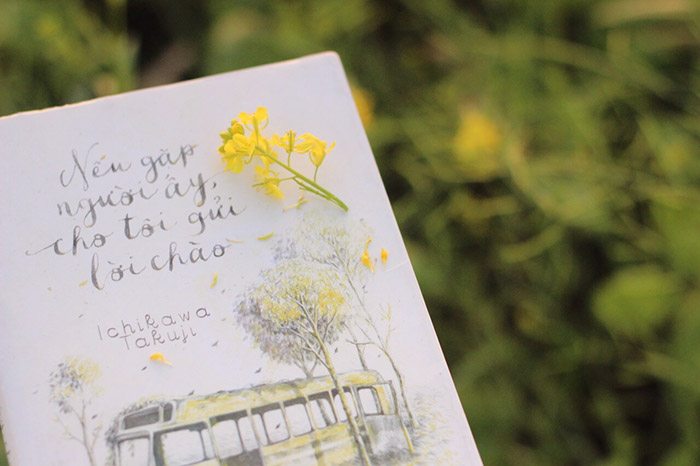 Nếu gặp
người ấy,
cho tôi gửi
lời chào
Ichikawa
Takuji